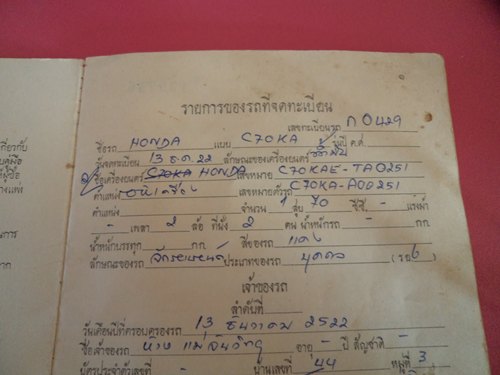 รายการของรถที่จดทะเบียน
เลขทะเบียนรถ ก 0429
ชื่อรถ HONDA แบบ C70KA รุ่นปี ค.ศ.
วันจดทะเบียน 13 ธ.ค. 22 ลักษณะของเครื่องยนต์
ชื่อเครื่องยนต์ C70KA HONDA เลขหมาย C70KAE-TA0251
ตำแหน่ง เลขหมายตัวรถ C70KA-A00251
ตำแหน่ง จำนวน 1 สูบ 70 ซีซี - แรงม้า
- เพลา 2 ล้อ ที่นั่ง 2 คน น้ำหนักรถ - กก.
น้ำหนักบรรทุก - กก. สีของรถ แดง
ลักษณะของรถ จักรยานยนต์ ประเภทของรถ บุคคล
เจ้าของรถ
ลำดับที่
วันเดือนปีที่ครอบครองรถ 13 ธันวาคม 2522
ชื่อเจ้าของรถ อายุ - ปี สัญชาติ -
บัตรประจำตัวเลขที่ - บ้านเลขที่ 44 หมู่ที่ 3
เกี่ยวกับ
ผู้ซื้อ